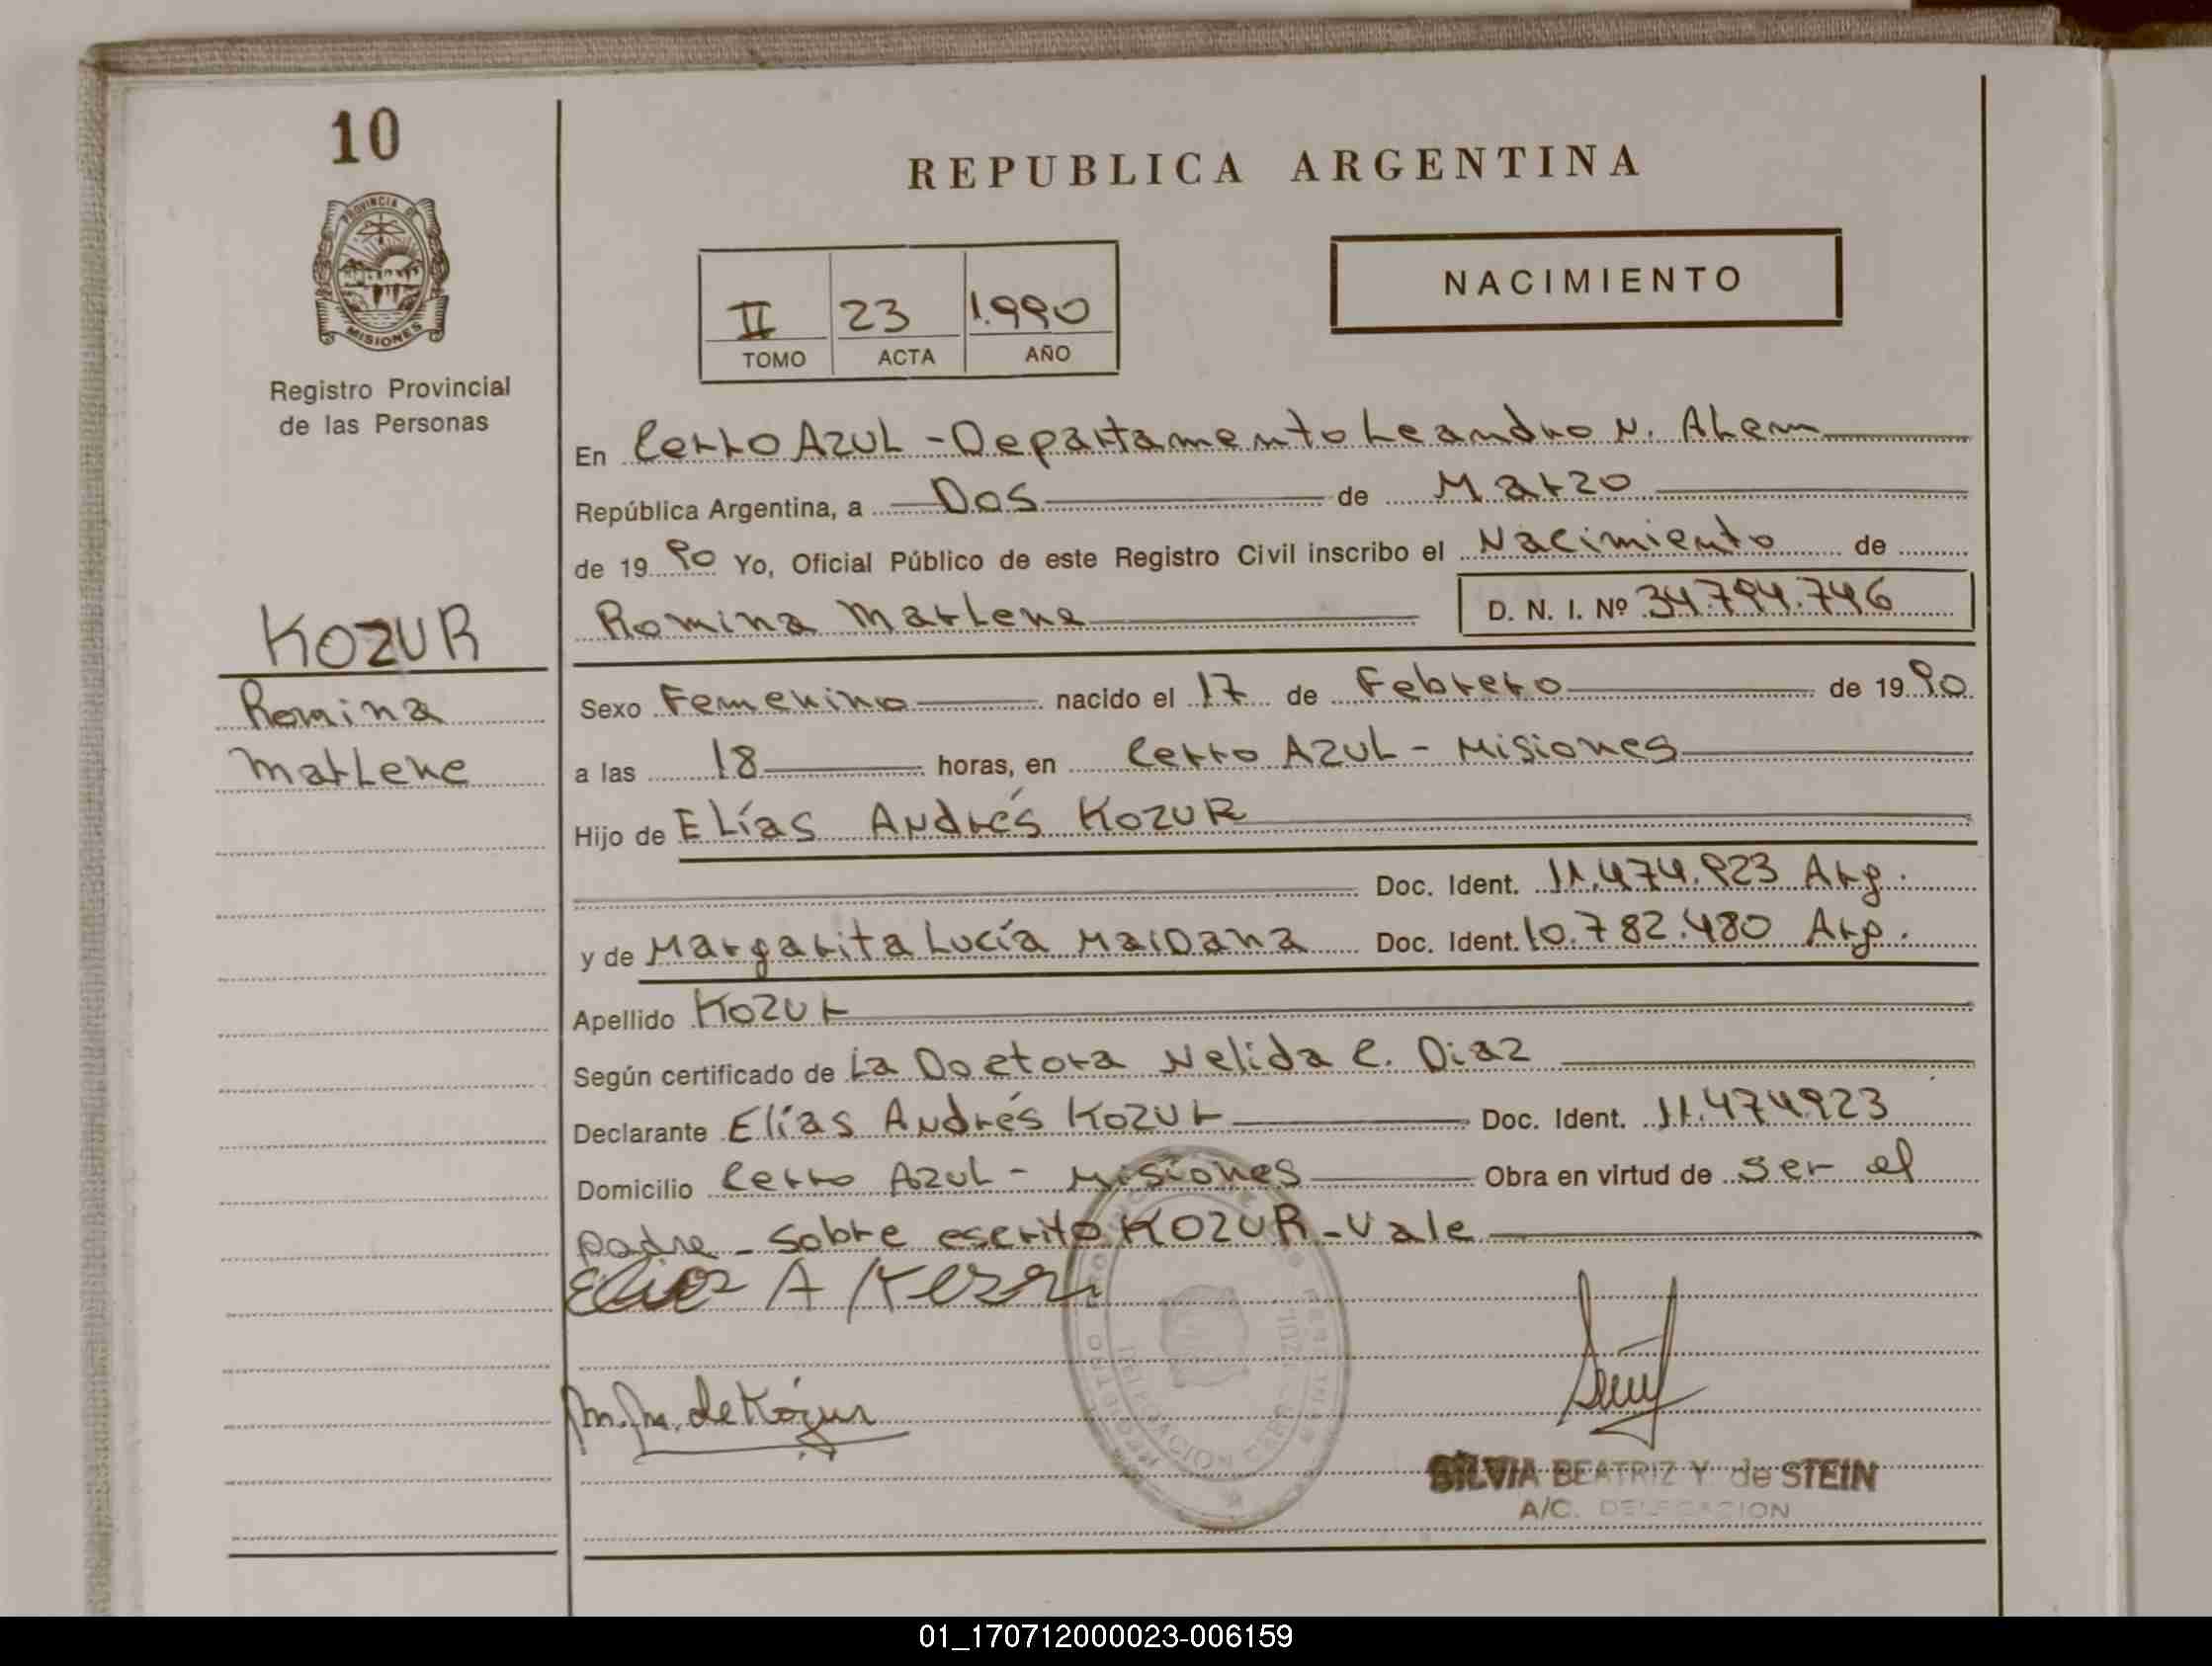 10
PROVINCIA DE
MISIONES
Registro Provincial
de las Personas
KOZUR
Romina
Marlene
REPUBLICA ARGENTINA
NACIMIENTO
II 23 1.990
TOMO ACTA AÑO
En Cerro Azul - Departamento Leandro N. Alem
República Argentina, a Dos de Marzo
de 19 90 Yo, Oficial Público de este Registro Civil inscribo el Nacimiento de
Romina Marlene D. N. I. Nº 34.794.746
Sexo Femenino nacido el 17 de Febrero de 19 90
a las 18 horas, en Cerro Azul - Misiones
Hijo de Elías Andrés Kozur
Doc. Ident. 11.474.923 Arg.
y de Margarita Lucía Maidana Doc. Ident. 10.782.480 Arg.
Apellido Kozur
Según certificado de La Doctora Nelida C. Diaz
Declarante Elías Andrés Kozur Doc. Ident. 11.474.923
Domicilio Cerro Azul - Misiones Obra en virtud de ser el
padre - sobre escrito KOZUR - Vale
Elias A Kozur
M. M. de Kozur
SILVIA BEATRIZ Y. de STEIN
A/C. DELEGACION
01_170712000023-006159